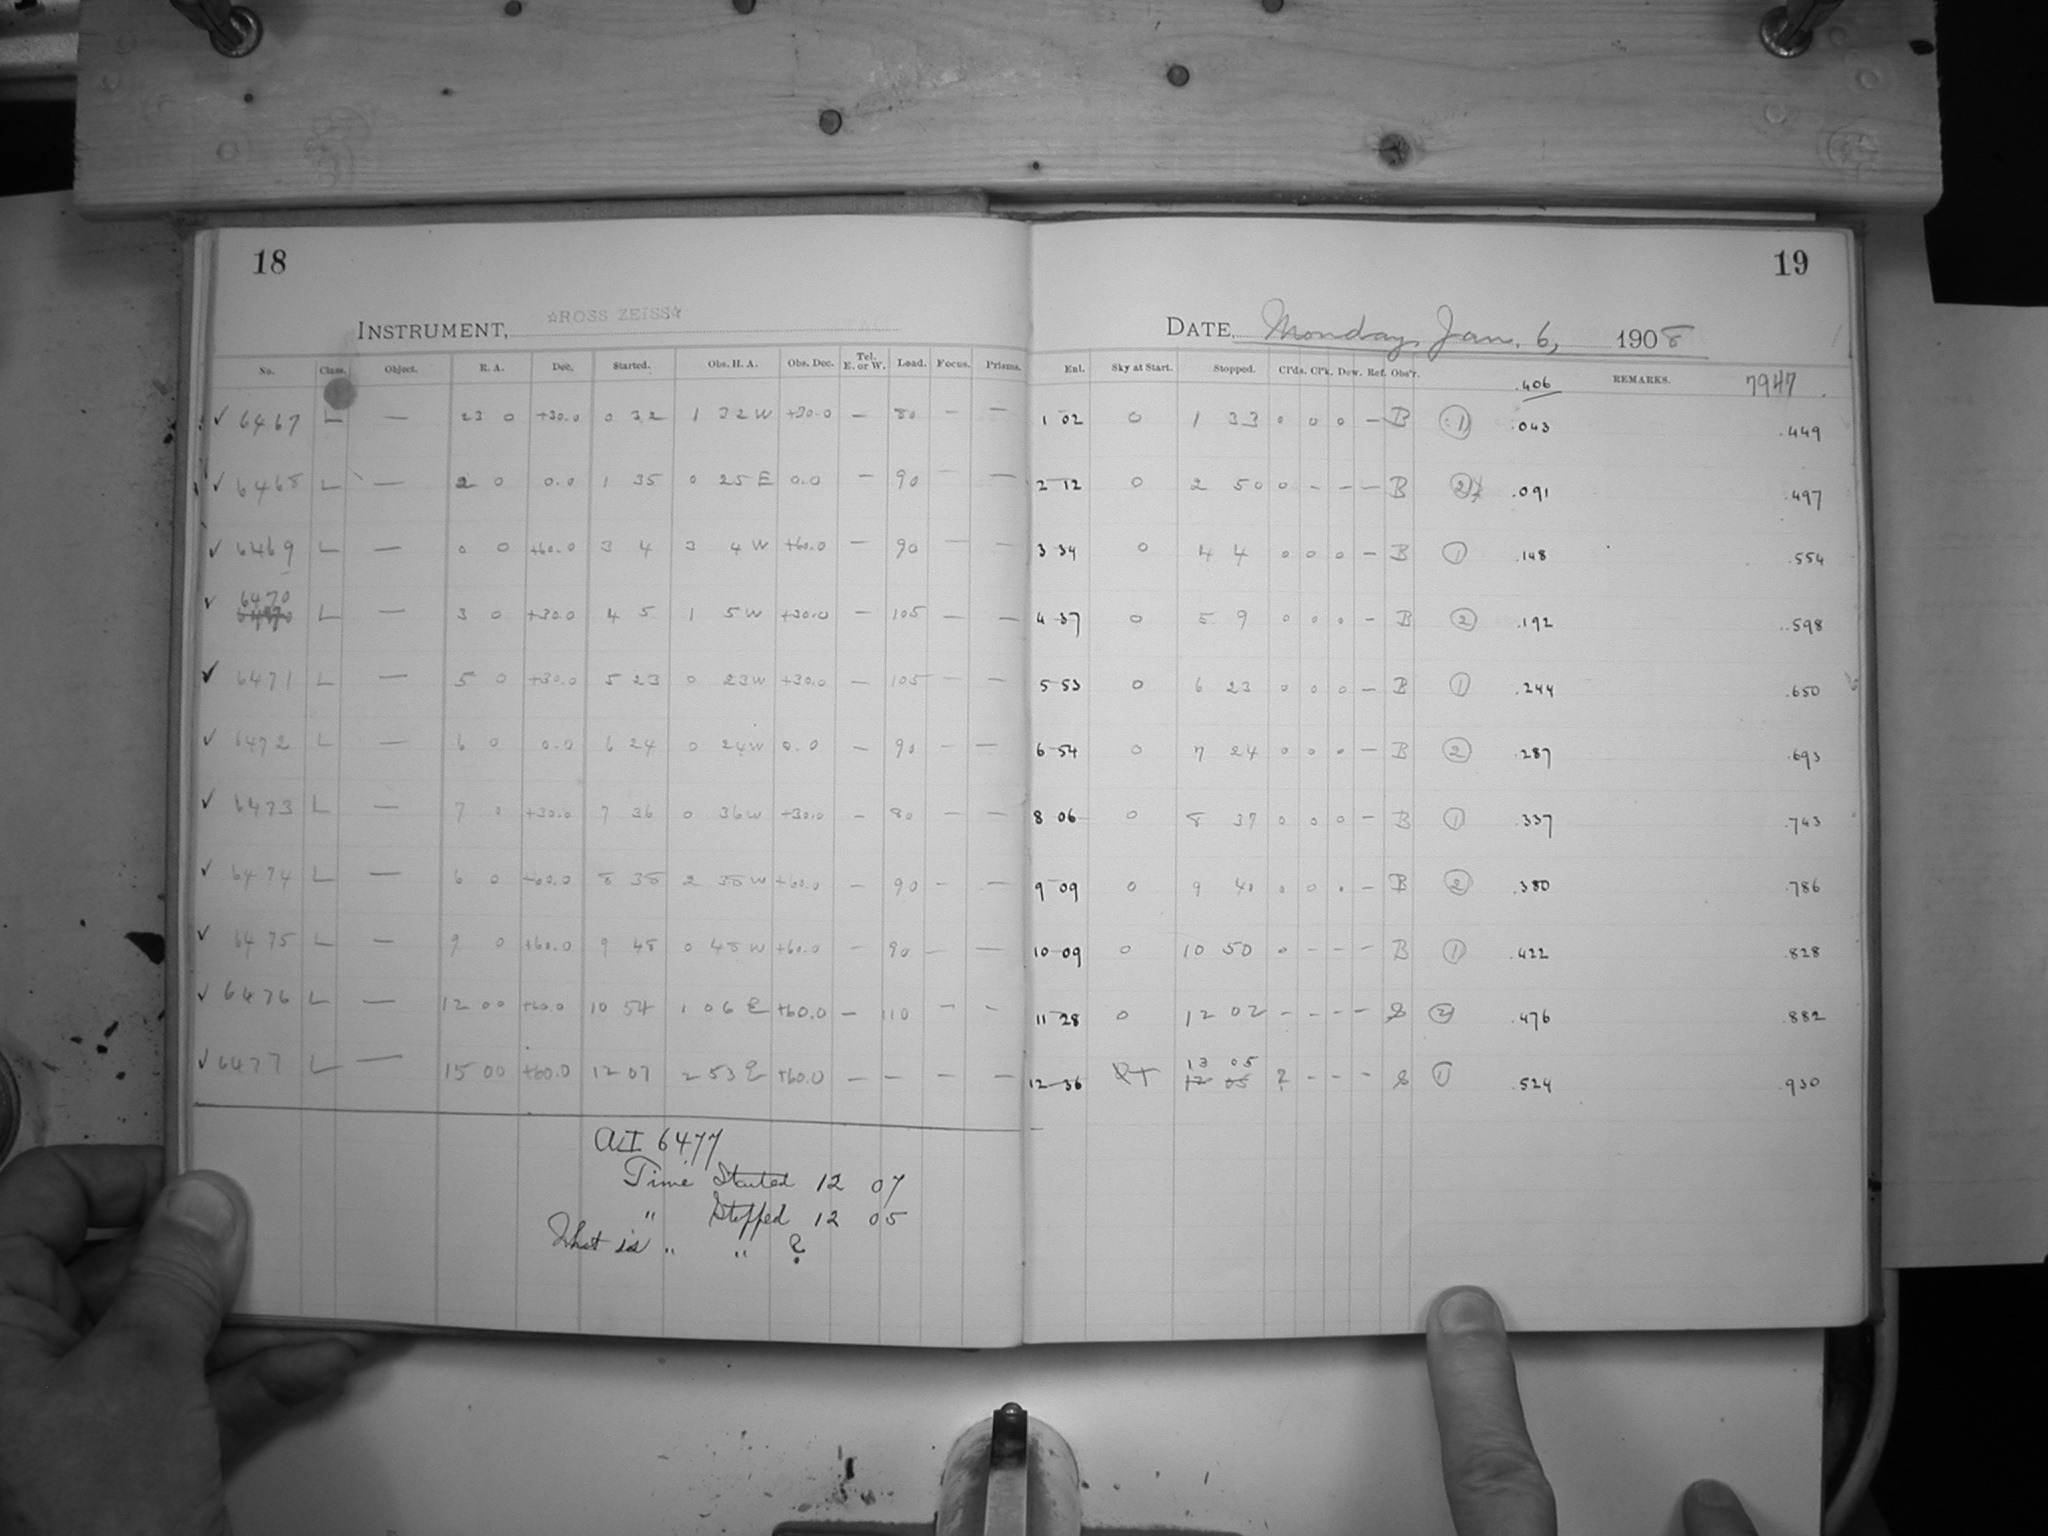 18
19
INSTRUMENT, ☆ROSS ZEISS☆
DATE, Monday, Jan. 6, 1908
No. Class. Object. R. A. Dec. Started. Obs. H. A. Obs. Dec. Tel. E. or W. Load. Focus. Prisms. Enl. Sky at Start. Stopped. Cl'ds. Cl'k. Dew. Ref. Obs'r. .406 REMARKS. 7947
✓ 6467 L — 23 0 +30.0 0 32 1 32 W +30.0 — 80 — — 1 02 0 1 33 0 0 0 — B ① .043 .449
✓ 6468 L — 2 0 0.0 1 35 0 25 E 0.0 — 90 — — 2 12 0 2 50 0 - — — B ② .091 .497
✓ 6469 L — 0 0 +60.0 3 4 3 4 W +60.0 — 90 — — 3 34 0 4 4 0 0 0 — B ① .148 .554
✓ 6470 L — 3 0 +30.0 4 5 1 5 W +30.0 — 105 — — 4 37 0 5 9 0 0 0 — B ② .192 .598
✓ 6471 L — 5 0 +30.0 5 23 0 23 W +30.0 — 105 — — 5 53 0 6 23 0 0 0 — B ① .244 .650
✓ 6472 L — 6 0 0.0 6 24 0 24 W 0.0 — 90 — — 6 54 0 7 24 0 0 0 — B ② .287 .693
✓ 6473 L — 7 0 +30.0 7 36 0 36 W +30.0 — 80 — — 8 06 0 8 37 0 0 0 — B ① .337 .743
✓ 6474 L — 6 0 +60.0 8 38 2 38 W +60.0 — 90 - — 9 09 0 9 40 0 0 0 — B ② .380 .786
✓ 6475 L — 9 0 +60.0 9 48 0 48 W +60.0 — 90 — — 10 09 0 10 50 0 - - - B ① .422 .828
✓ 6476 L — 12 00 +60.0 10 54 1 06 E +60.0 — 110 — - 11 28 0 12 02 - - - - S ② .476 .882
✓ 6477 L — 15 00 +60.0 12 07 2 53 E +60.0 — — — — 12 36 13 05 12 05 ? - - - S ① .524 .930
6477
Time Started 12 07
" Stopped 12 05
What is " " ?